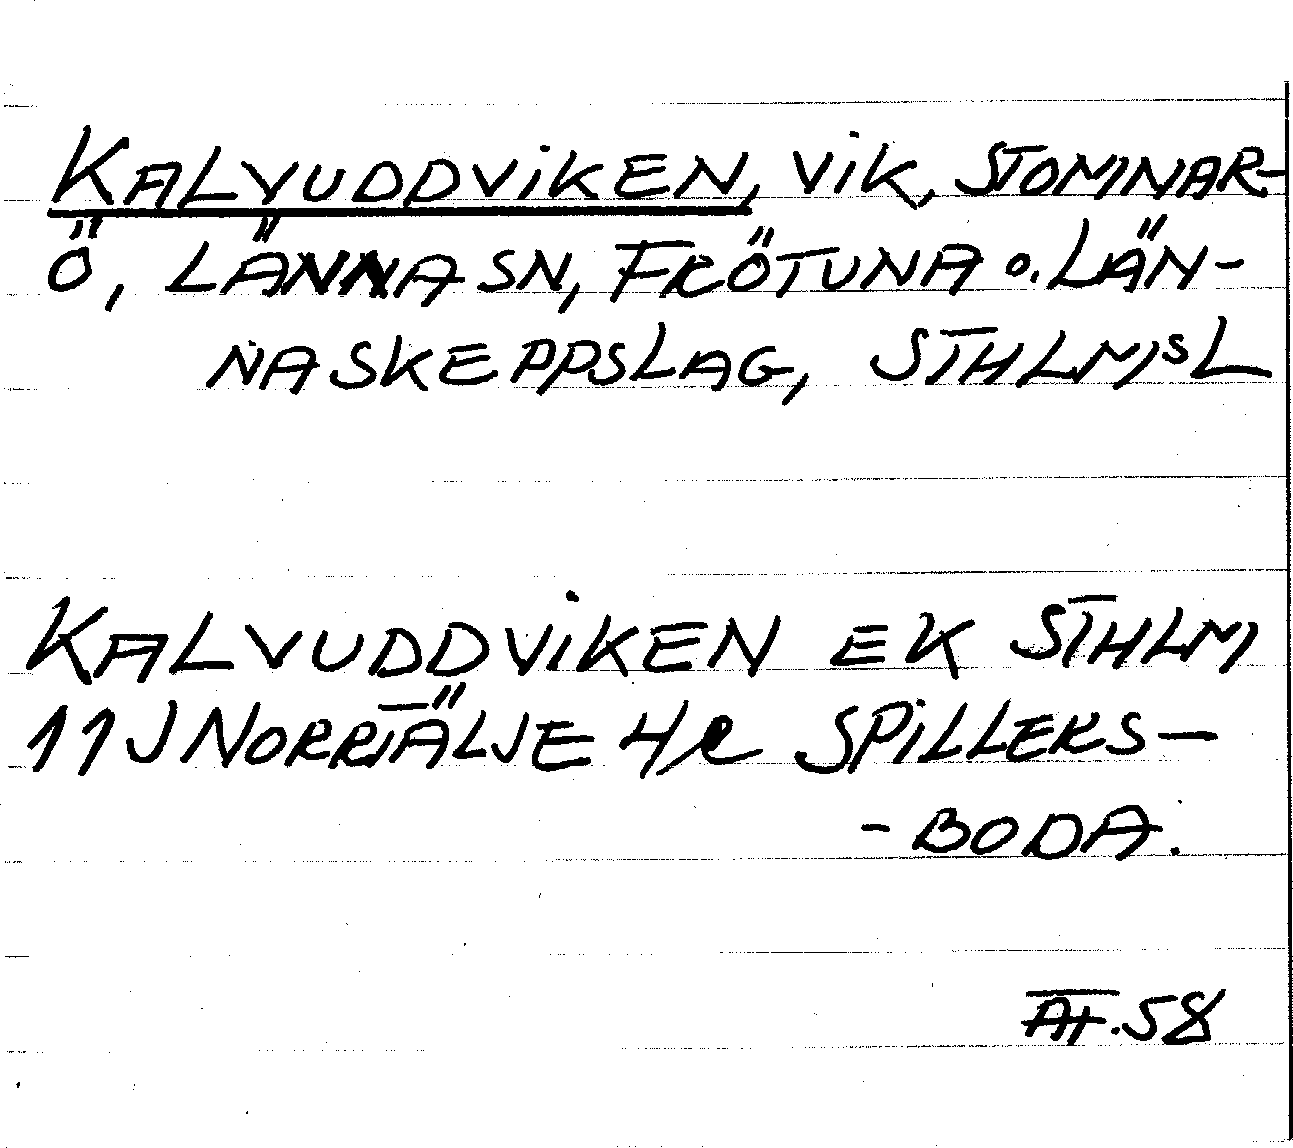 KALVUDDVIKEN, VIK, STOMNAR-
Ö, LÄNNA SN, FRÖTUNA O. LÄN-
NA SKEPPSLAG, STHLMSL
KALVUDDVIKEN EK STHLM
11J NORRTÄLJE 4/R SPILLERS-
-BODA.
AF.58